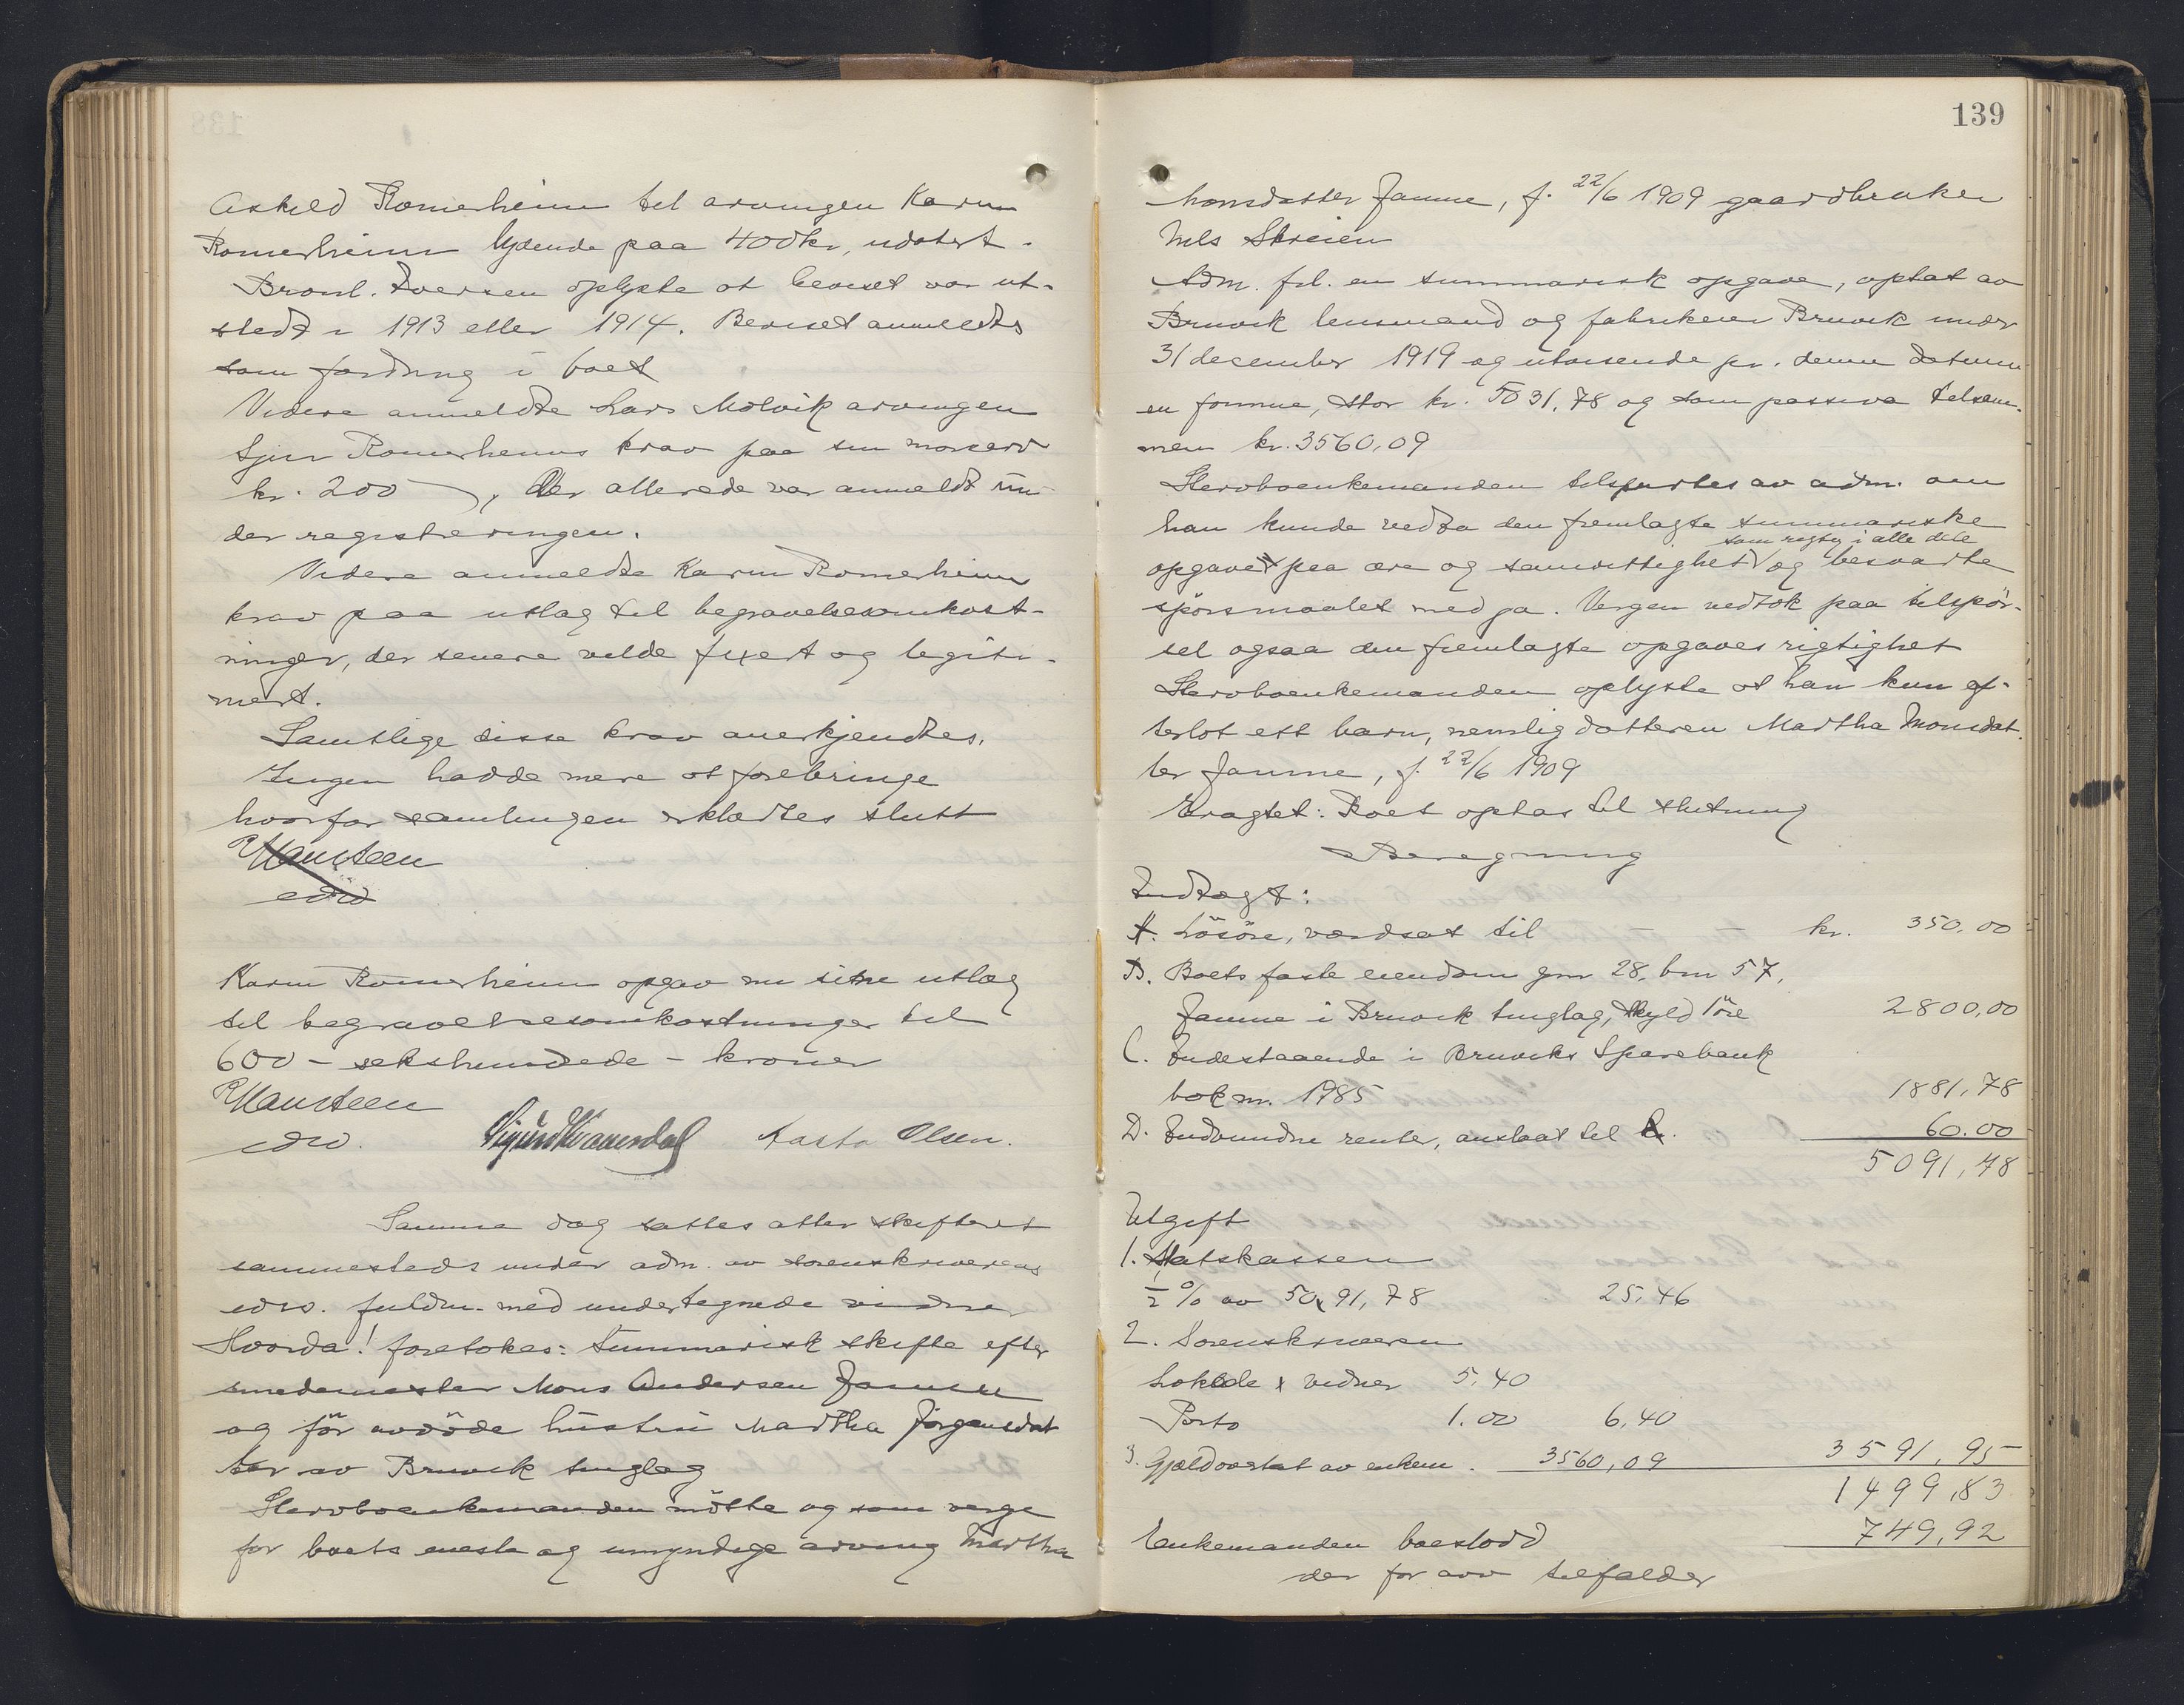 Askild Romerheim til arvingen Karen
Romerheim lydende paa 400 kr, udatert.
Iversen oplyste at beviset var ut-
stedt i 1913 eller 1914. Beviset anmeldtes
som fordring i boet
Videre anmeldte Lars Molvik arvingen
Romerheims krav paa sin morsarv
kr. 200, der allerede var anmeldt un-
der registreringen.
Videre anmeldte Karen Romerheim
krav paa utlæg til begravelsesomkost-
ninger, der senere vilde fixert og legiti-
mert.
Samtlige disse krav anerkjendtes.
Ingen hadde mere at frembringe
hvorfor samlingen erklærtes slutt
Hansteen
edsv
Karen Romerheim opgav nu sine utlæg
til begravelsesomkostninger til
600 - sekshundrede - kroner
Hansteen
edsv. Aasta Olsen.
Samme dag sattes atter skifteret
sammesteds under adm. av sorenskriverens
edsv. fuldm. med undertegnede vidner
Hvorda! foretokes: Summarisk skifte efter
smedemester Mons Andersen Jamne
og för avdöde hustru Martha Jörgensdat
ter av Bruvik tinglag
Stervboenkemanden mötte og som verge
for boets eneste og umyndige arving Martha
139
Monsdatter Jamne, f. 22/6 1909 gaardbruker
Nils Skreien
Adm. frl. en summarisk opgave, optat av
Bruvik lensmand og fabrikeier Bruvik under
31 december 1919 og utvisende pr. denne datum
en formue, stor kr. 5031,78 og som passiva tilsam-
men kr. 3560,09
Stervboenkemanden tilspurtes av adm. om
han kunde vedta den fremlagte summariske
som rigtig i alle dele
opgave paa ære og samvittighet og besvarte
spörsmaalet med ja. Vergen vedtok paa tilspör-
sel ogsaa den fremlagte opgaves rigtighet
Stervboenkemanden oplyste at han kun ef-
terlot ett barn, nemlig datteren Martha Monsdat.
ter Jamne, f. 22/6 1909
Eragtet: Boet optas til slutning
Beregning
Indtægt:
A. Lösöre, værdsat til - - kr. 350,00
B. Boets faste eiendom gnr 28, bnr 57,
Jamne i Bruvik tinglag, skyld 1 öre 2800,00
C. Indestaaende i Bruviks Sparebank
bok nr. 1985 1881,78
D. Indvundne renter, anslaat til 60.00
5091,78
Utgift
1. Statskassen
1/2 % av 5091,78 25,46
2. Sorenskriveren
Lokale & vidner 5,40
Porto 1.00 6,40
3. Gjæld overtat av enkem. 3560,09 3591,95
1499,83
Enkemanden boeslodd 749,92
der for arv tilfalder